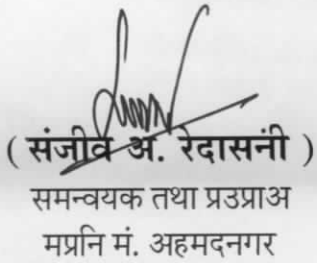 ( संजीव अ. रेदासनी )
समन्वयक तथा प्रउप्राअ
मप्रनि मं. अहमदनगर